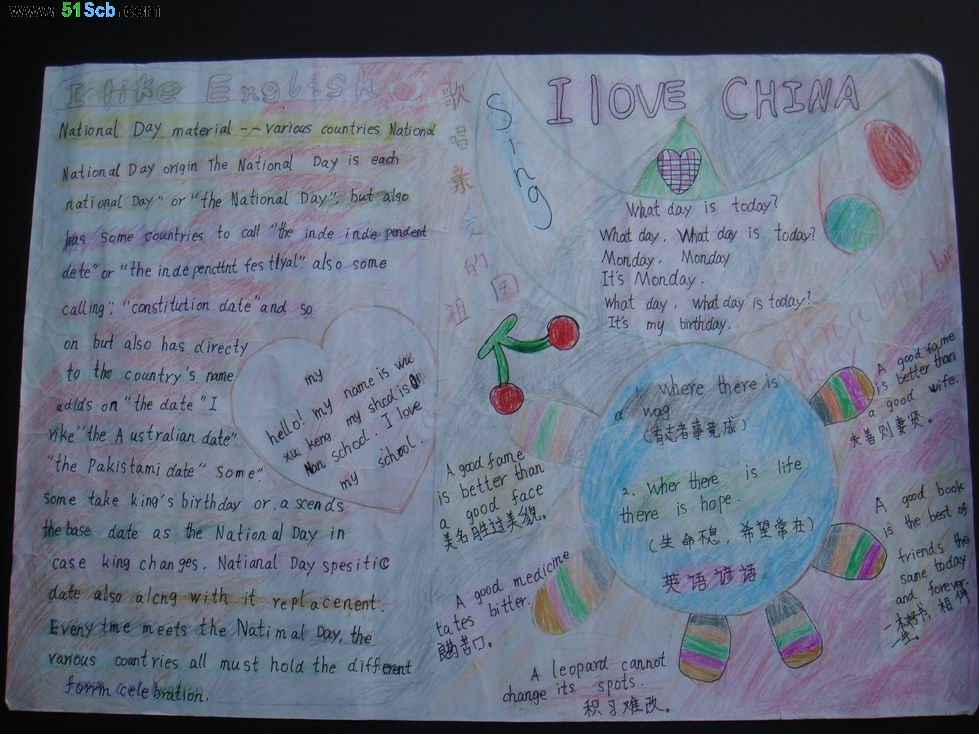 www.51Scb.com
I like English
National Day material -- various countries National
National Day origin The National Day is each
national Day" or "the National Day", but also
has some countries to call "the inde inde pendent
dete" or "the indepencttnt festlyal". also some
calling; "constitution date" and so
on but also has directy
to the country's name
adds on "the date" I
vike "the Australian date"
"the Pakistami date" some".
some take king's birthday or ascends
the base date as the National Day in
case king changes. National Day spesitic
date also alcng with it replacenent.
Eveny tme meets the Natimal Day, the
various countries all must hold the different
form celebration.
my
hello! my name is wu
xu keng my shcol is
Nan schod. I love
my school.
歌唱亲爱的祖国
Sing
I lOVE CHINA
What day is today?
What day, What day is today?
Monday, Monday
It's Monday.
What day, what day is today?
It's my birthday.
happy bir
1. Where there is
a wag
(有志者事竟成)
2. Wher there is life
there is hope.
(生命不息，希望常在)
英语谚语
A good fame
is better than
a good face
美名胜过美貌。
A good medicine
tates bitter.
良药苦口。
A leopard cannot
change its spots.
积习难改。
A good fame
is better than
a good wife.
夫善则妻贤。
A good book
is the best of
friends the
same today
and forever.
一本好书，相伴
一生。